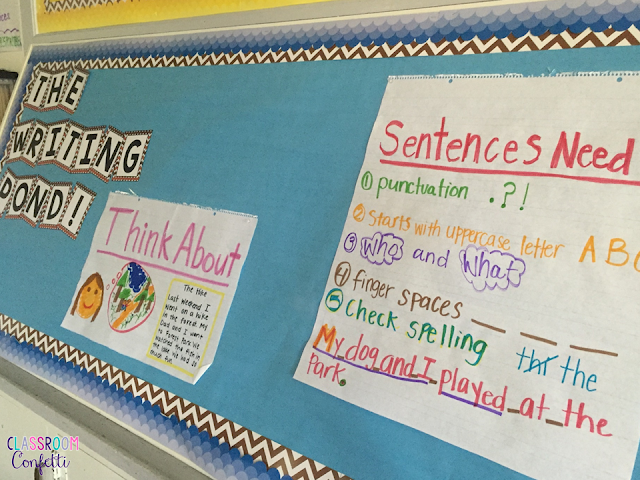 THE
WRITING
POND!
Think About
The Hike
Last weekend I
went on a hike
in the forest. My
Dad and I went
to Forest Park. We
watched the fish in
the lake. We had so
much fun.
Sentences Need
① punctuation . ? !
② Starts with uppercase letter ABC
③ Who and What
④ finger spaces
⑤ Check spelling
thr the
My dog and I played at the
Park.
CLASSROOM
Confetti